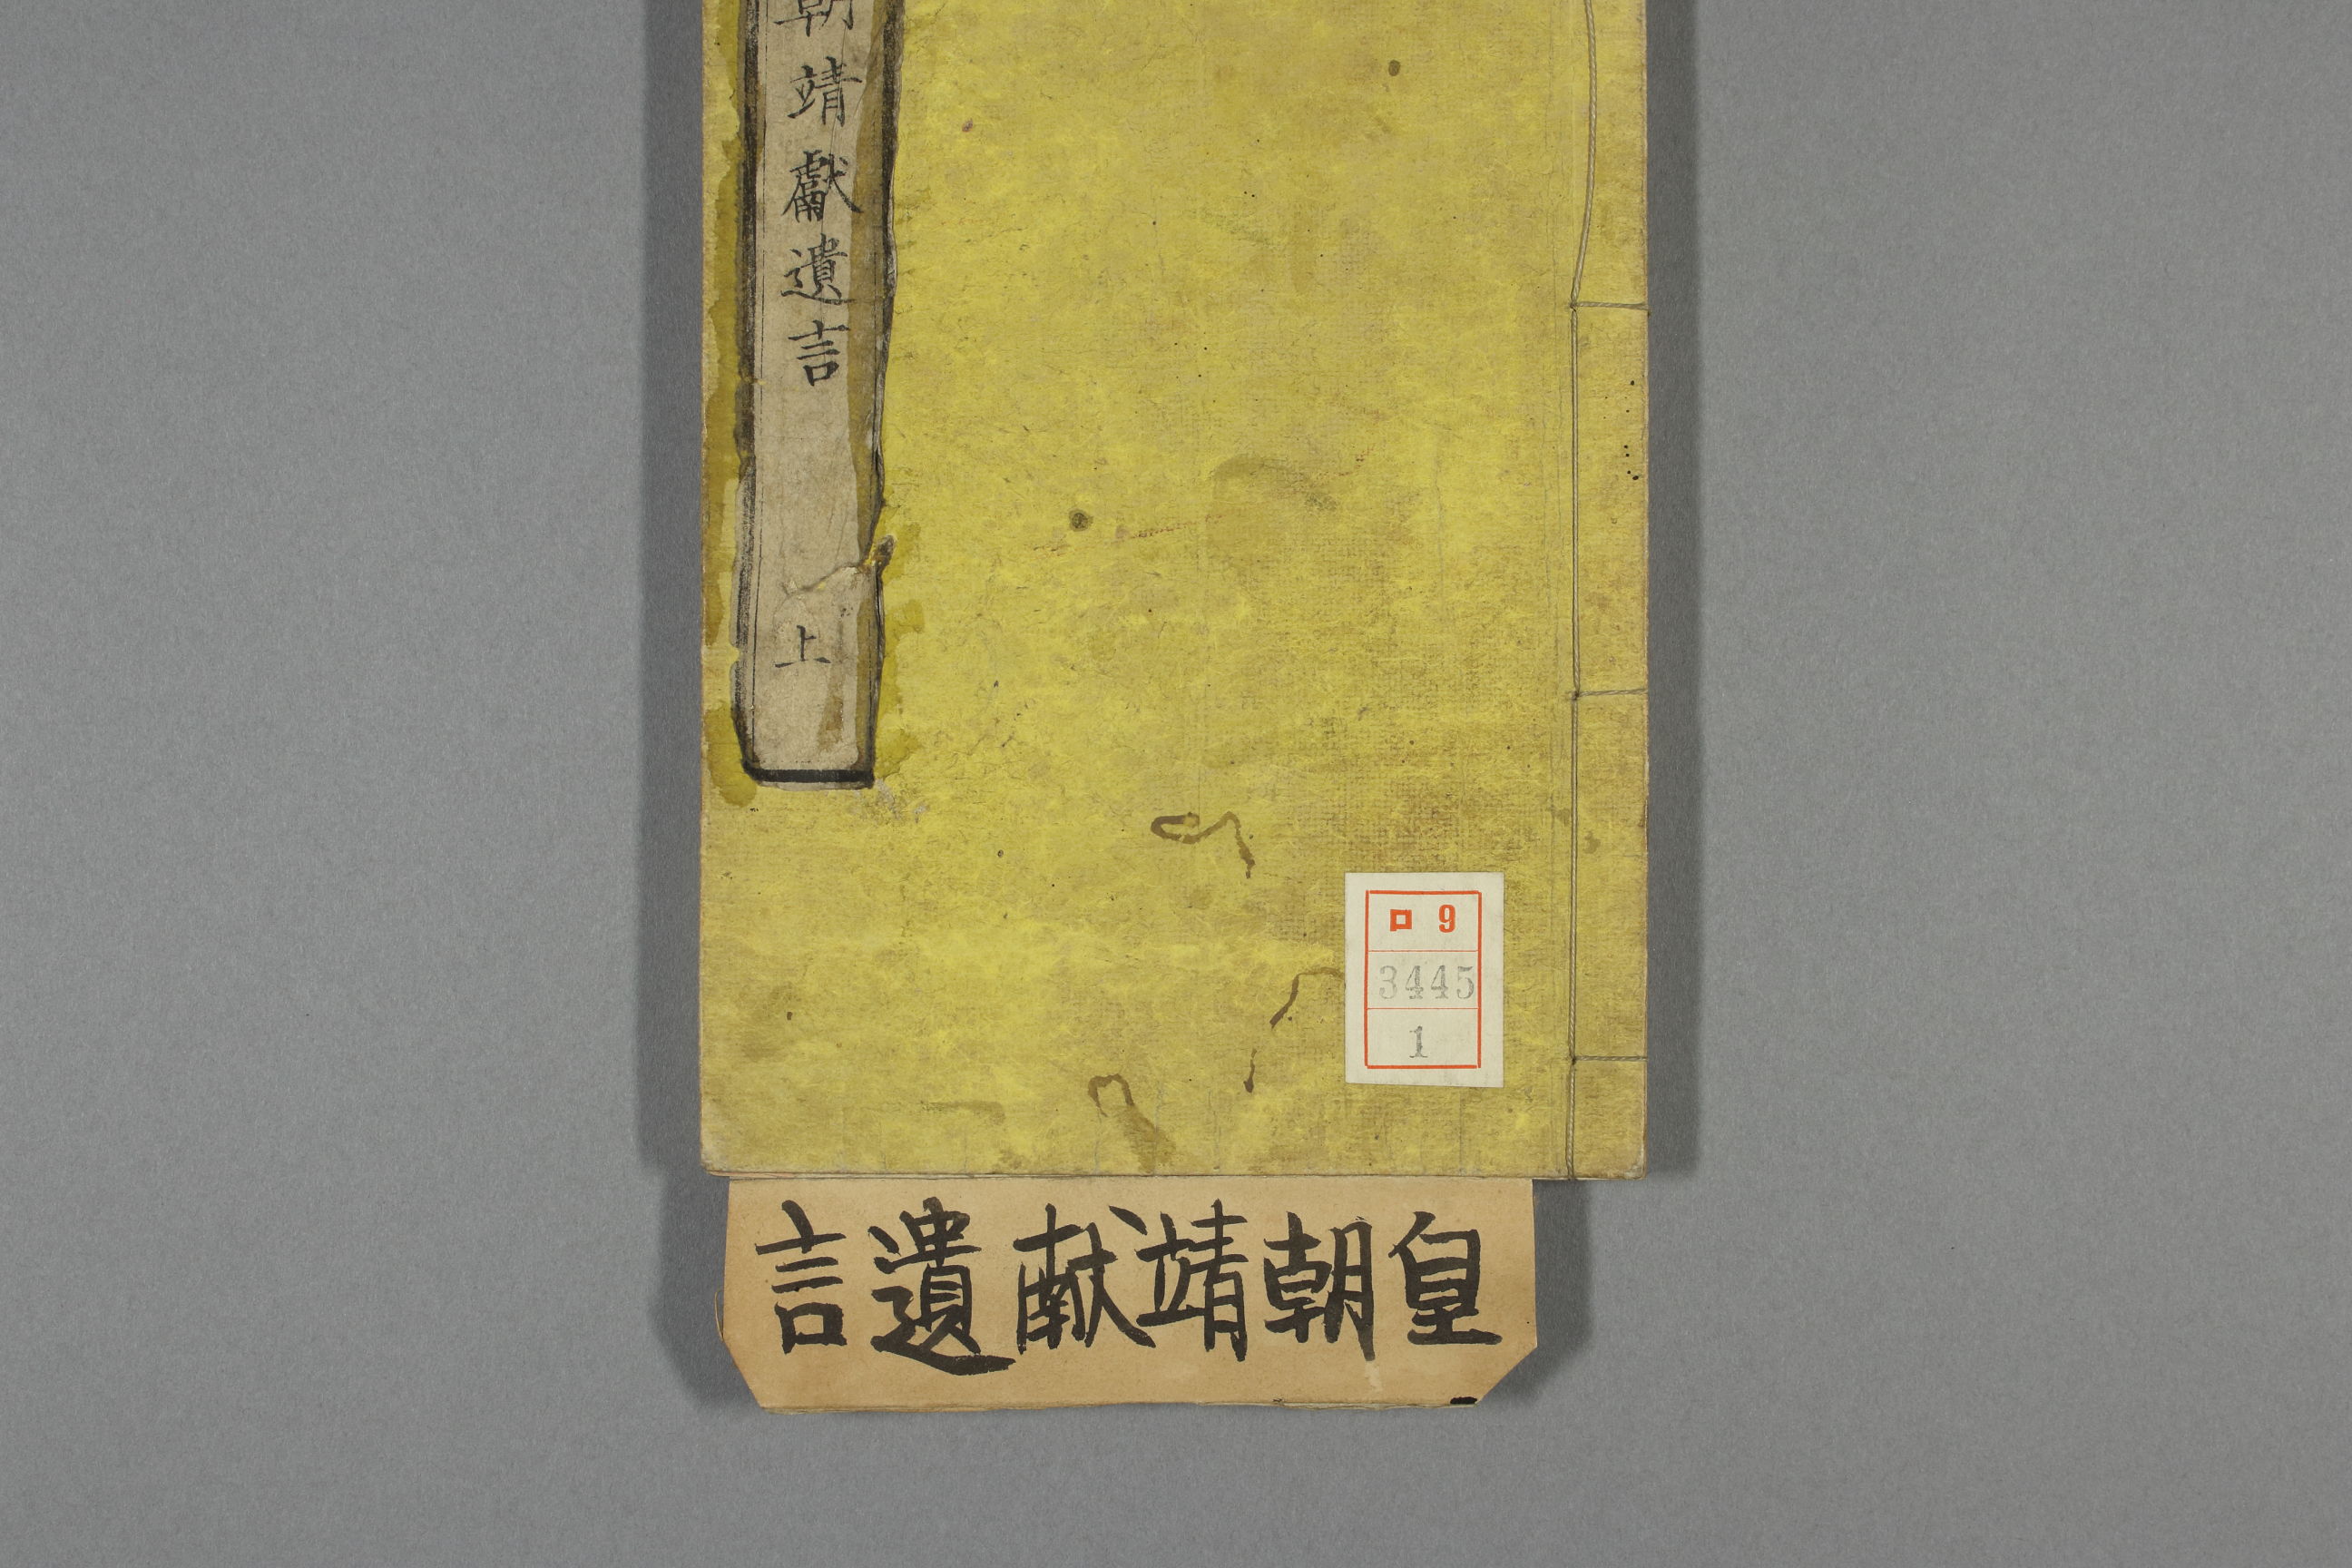 朝靖獻遺言 上
ロ 9
3445
1
皇朝靖献遺言